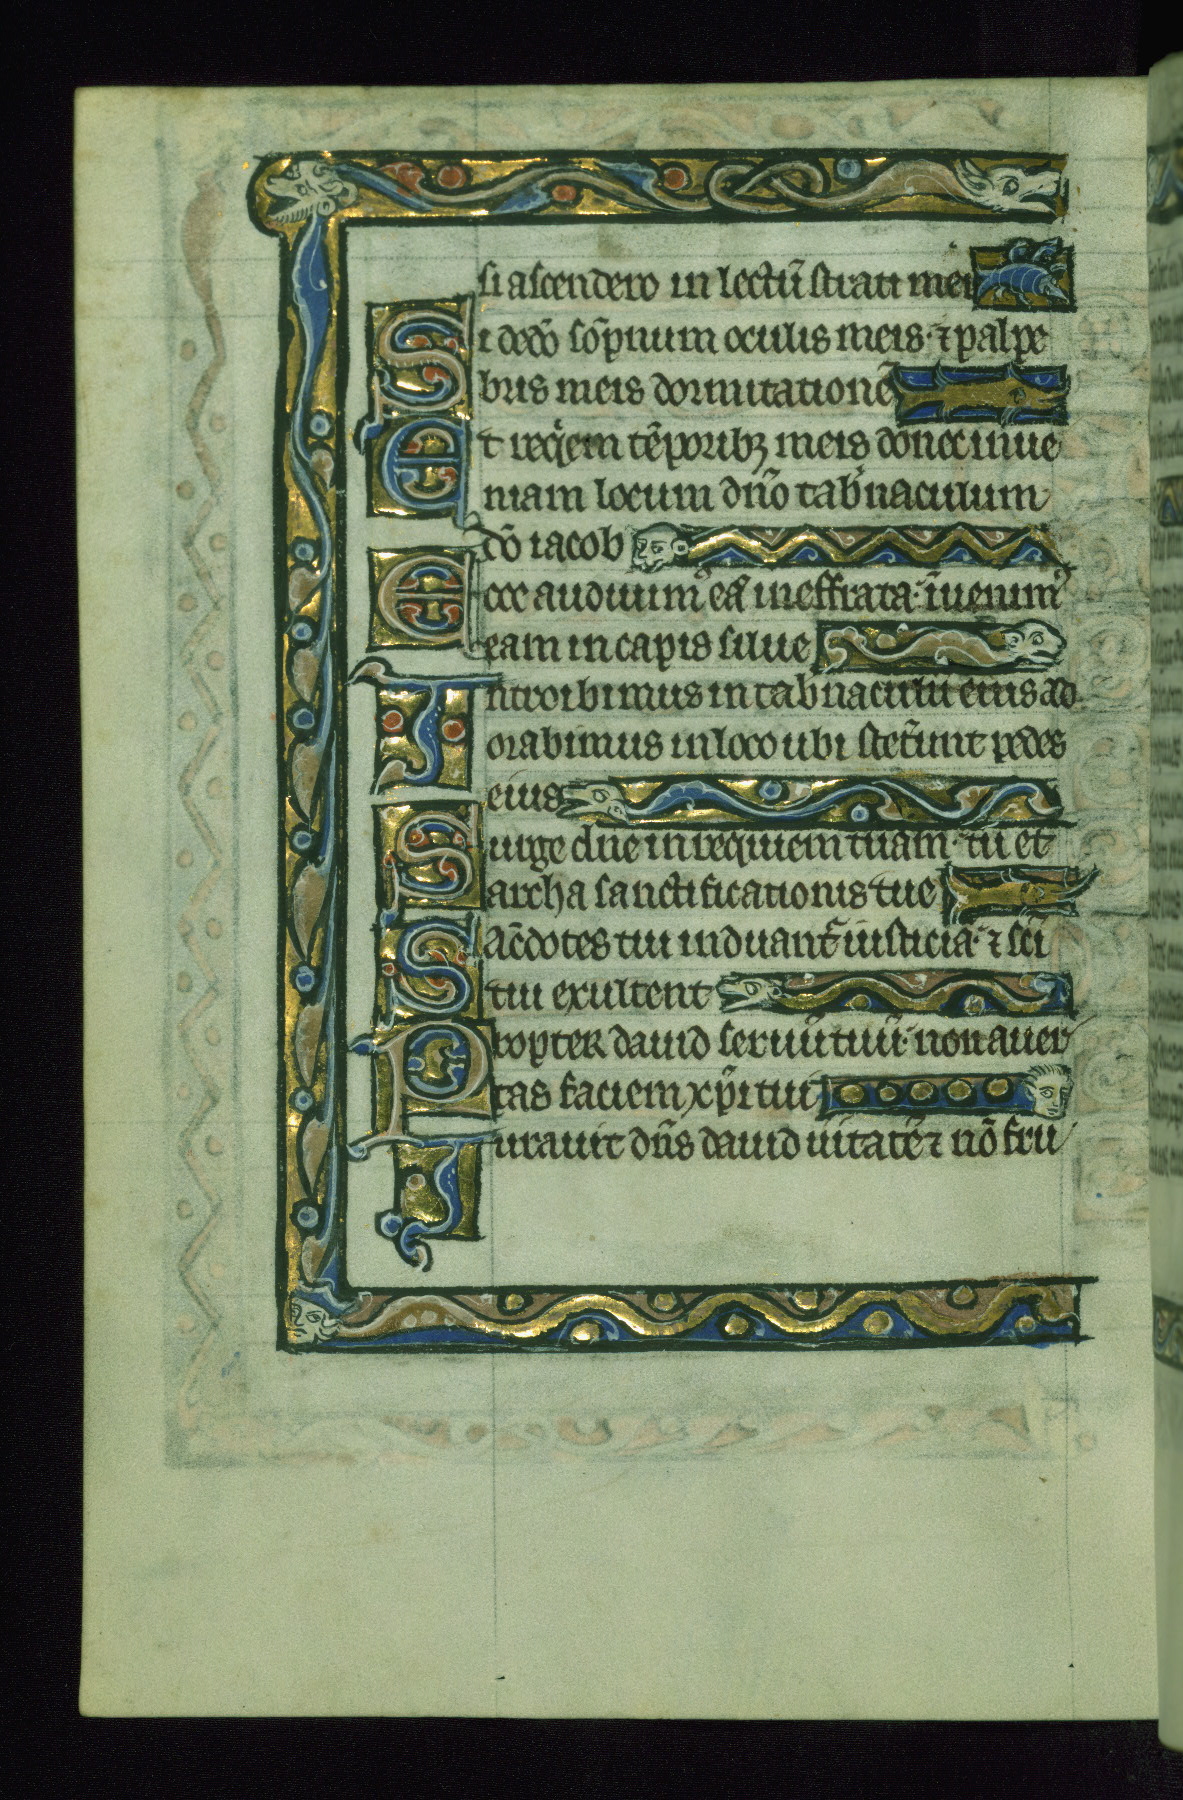 si ascendero in lectū strati mei
Si dedō sōpnum oculis meis· ⁊ palpe
bris meis dormitationē
Et req̇em tēporibꝫ meis donec inue
niam locum dn̄o tab̄naculum
dō iacob
Ecce audiuim᷒ eā in effrata· īuenim᷒
eam in capis silue
Introibimus in tab̄naculū eius ad
orabimus in loco ubi stet̄unt pedes
eius
Surge dn̄e in requiem tuam· tu et
archa sanctificationis tue
Sac̄dotes tui induant᷑ iusticiā· ⁊ sc̄i
tui exultent
Propter dauid seruū tuū· non auer
tas faciem xp̄i tui
Iurauit dn̄s dauid u̇itatē ⁊ nō fru